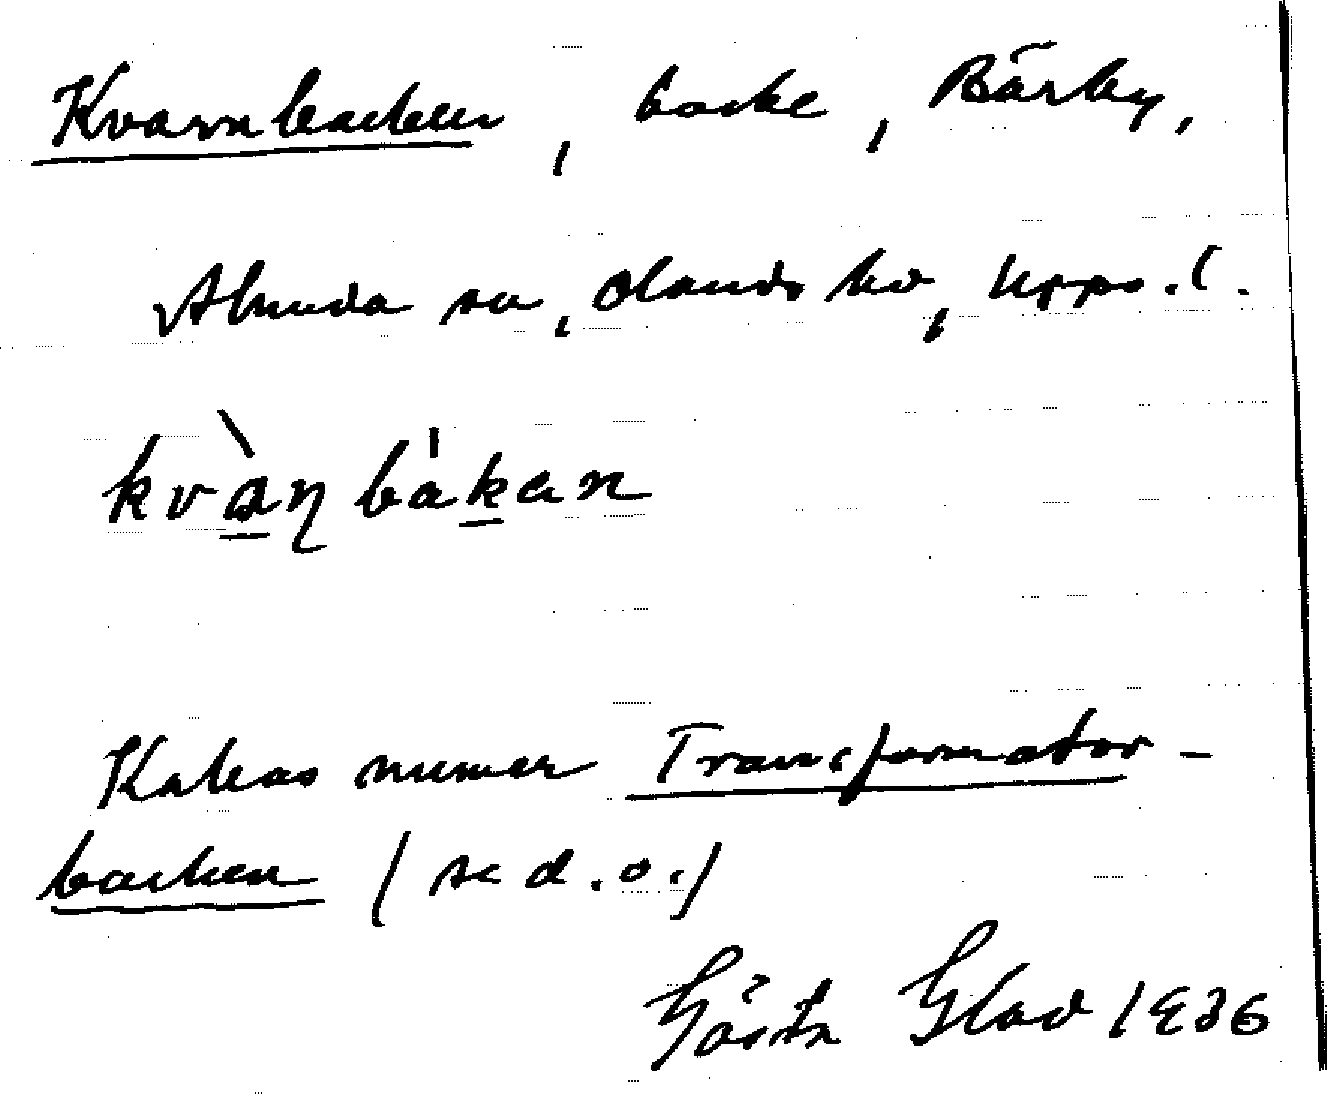 Kvarnbacken, backe, Bärby,
Almunda sn, Olands hd, Upps. l.
kvàɳbákan
Kallas numer Transformator-
backen (se d.o.)
Gösta Glad 1936